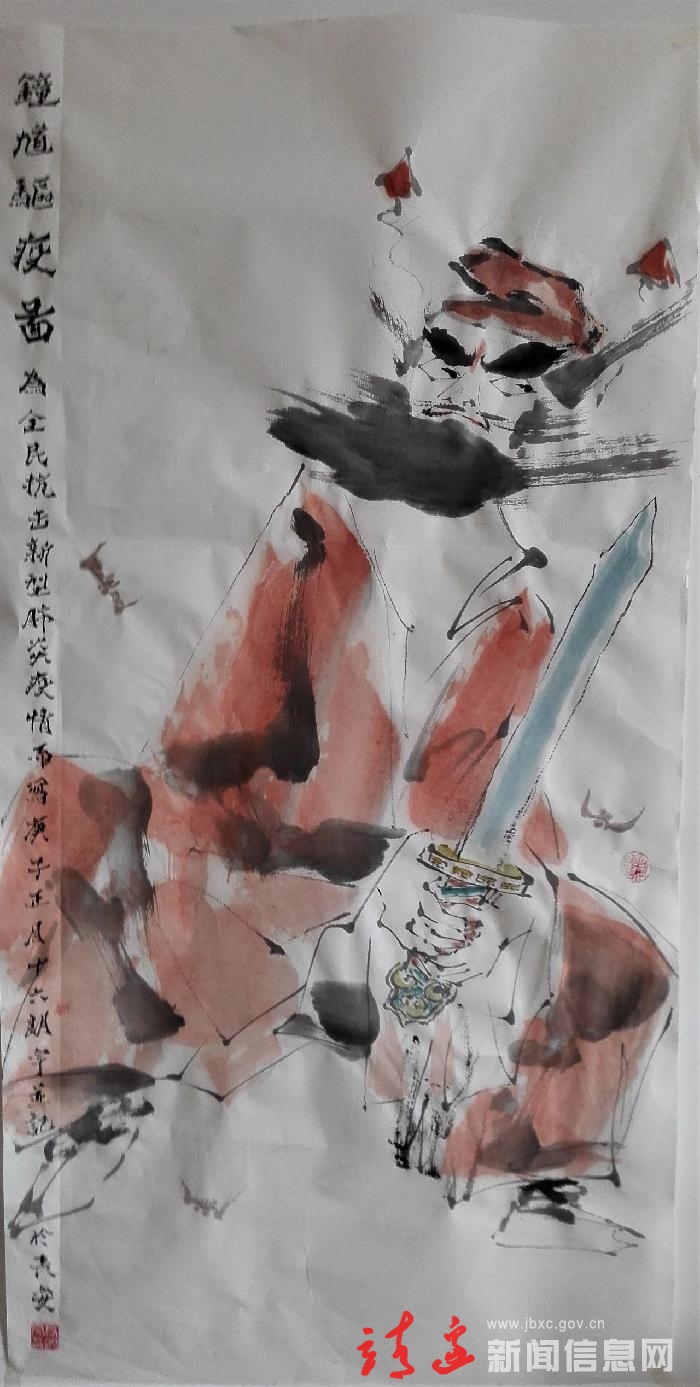 鐘馗驅疫图 為全民抗击新型肺炎疫情而寫庚子正月十六朝宇並記於長安
www.jbxc.gov.cn
靖边 新闻信息网